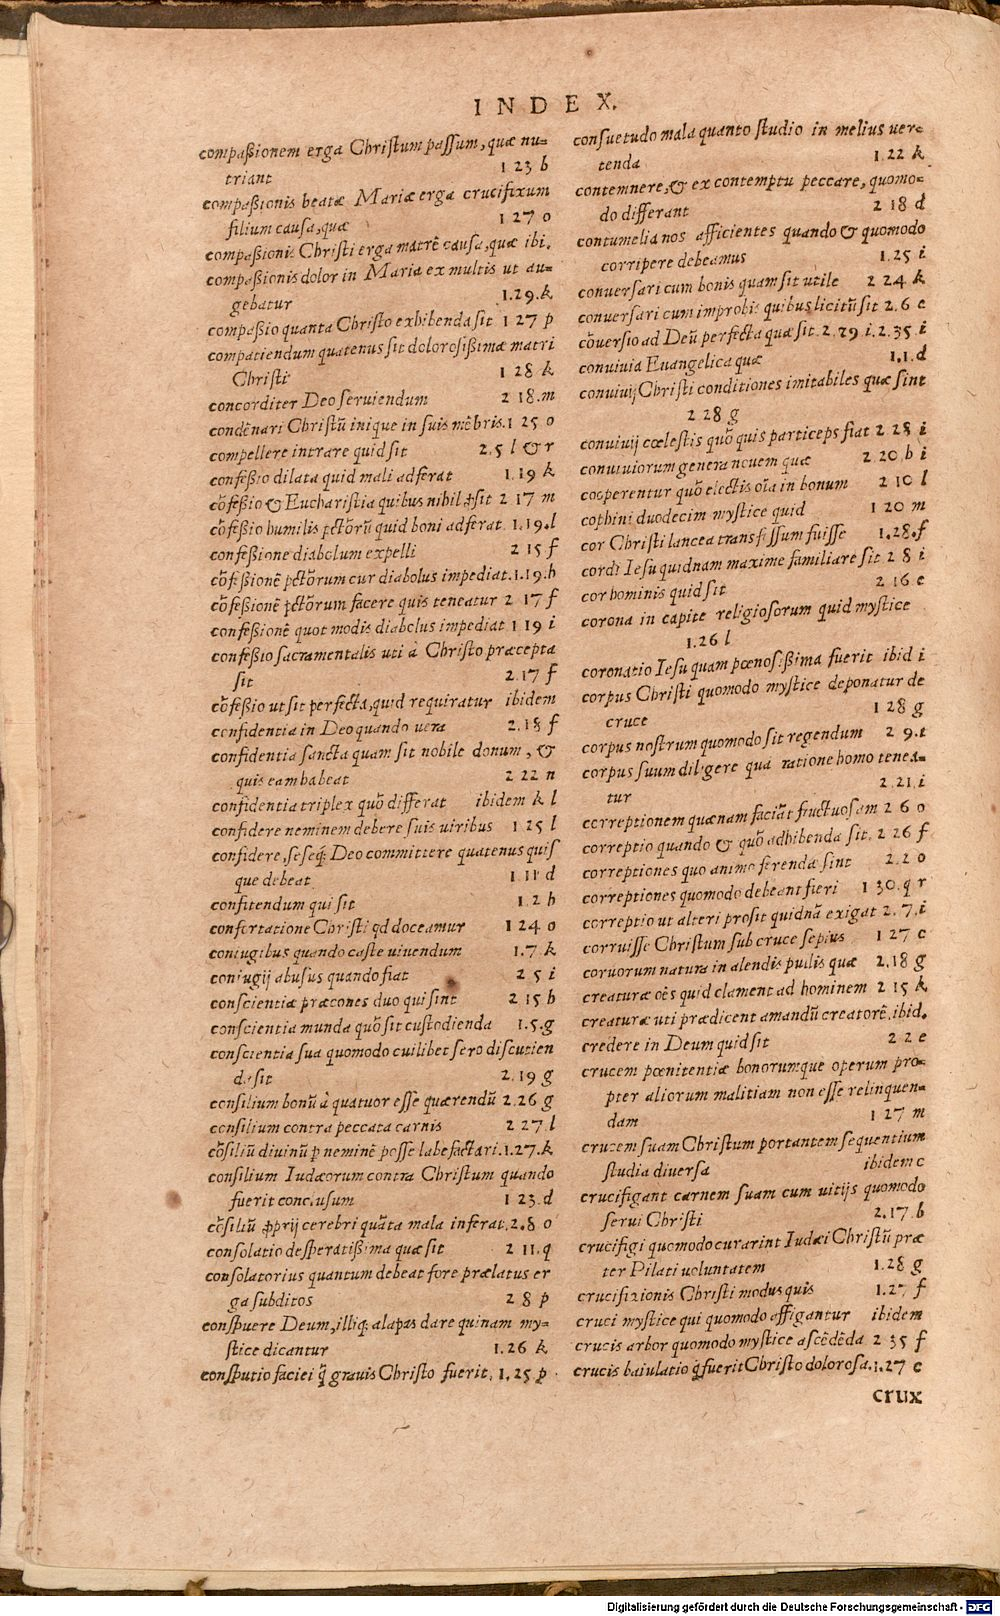 INDEX.
compaßionem erga Christum passum, quæ nu=
triant 1 23 b
compaßionis beatæ Mariæ erga crucifixum
filium causa, quæ 1 27 o
compaßionis Christi erga matrẽ causa, quæ ibi.
compaßionis dolor in Maria ex multis ut au=
gebatur 1.29.k
compaßio quanta Christo exhibenda sit 1 27 p
compatiendum quatenus sit dolorosißimæ matri
Christi 1 28 k
concorditer Deo seruiendum 2 18.m
condẽnari Christũ inique in suis mẽbris.1 25 o
compellere intrare quid sit 2.5 l & r
confeßio dilata quid mali adferat 1.19 k
cõfeßio & Eucharistia quibus nihil ꝓsit 2 17 m
cõfeßio humilis pctõrũ quid boni adferat. 1.19.l
confeßione diabolum expelli 2 15 f
cõfeßionẽ pctõrum cur diabolus impediat.1.19.h
cõfeßionẽ pctõrum facere quis teneatur 2 17 f
confeßionẽ quot modis diabolus impediat 1 19 i
confeßio sacramentalis uti à Christo præcepta
sit 2.17 f
cõfeßio ut sit perfecta, quid requiratur ibidem
confidentia in Deo quando uera 2.18 f
confidentia sancta quam sit nobile donum, &
quis eam habeat 2 22 n
confidentia triplex quõ differat ibidem k l
confidere neminem debere suis uiribus 1 25 l
confidere, seseq́; Deo committere quatenus quis
que debeat 1 11 d
confitendum qui sit 1.2 h
confortatione Christi qd doceamur 1 24 o
coniugibus quando caste uiuendum 1.7 k
coniugij abusus quando fiat 2 5 i
conscientiæ præcones duo qui sint 2 15 b
conscientia munda quõ sit custodienda 1.5.g
conscientia sua quomodo cuilibet sero discutien
da sit 2.19 g
consilium bonũ à quatuor esse quærendũ 2.26 g
consilium contra peccata carnis 2 27 l
cõsiliũ diuinũ p neminẽ posse labefactari.1.27.k
consilium Iudæorum contra Christum quando
fuerit conclusum 1 23.d
cõsiliũ ꝓprij cerebri quãta mala inferat.2.8 o
consolatio desperatißima quæ sit 2 11.q
consolatorius quantum debeat fore prælatus er
ga subditos 2 8 p
conspuere Deum, illiq; alapas dare quinam my=
stice dicantur 1.26 k
consputio faciei q̃ grauis Christo fuerit. 1.25 p
consuetudo mala quanto studio in melius uer=
tenda 1.22 k
contemnere, & ex contemptu peccare, quomo=
do differant 2 18 d
contumelia nos afficientes quando & quomodo
corripere debeamus 1.25 i
conuersari cum bonis quam sit utile 2 24 k
conuersari cum improbis quibus licitũ sit 2.6 e
cõuersio ad Deũ perfecta quæ sit. 2.29.i.2.35 i
conuiuia Euangelica quæ 1.1.d
conuiuij Christi conditiones imitabiles quæ sint
2 28 g
conuiuij cœlestis quõ quis particeps fiat 2 28 i
conuiuiorum genera nouem quæ 2 20 b i
cooperentur quõ electis oĩa in bonum 2 10 l
cophini duodecim mystice quid 1 20 m
cor Christi lancea transfissum fuisse 1.28.f
cordi Iesu quidnam maxime familiare sit 2 8 i
cor hominis quid sit 2 16 e
corona in capite religiosorum quid mystice
1.26 l
coronatio Iesu quam pœnosißima fuerit ibid i
corpus Christi quomodo mystice deponatur de
cruce 1 28 g
corpus nostrum quomodo sit regendum 2 9.t
corpus suum diligere qua ratione homo tenea=
tur 2.21.i
correptionem quænam faciãt fructuosam 2 6 o
correptio quando & quõ adhibenda sit. 2 26 f
correptiones quo animo ferendæ sint 2.2 o
correptiones quomodo debeant fieri 1 30.q r
correptio ut alteri prosit quidnã exigat 2.7.i
corruisse Christum sub cruce sepius 1 27 c
coruorum natura in alendis pullis quæ 2.18 g
creaturæ oẽs quid clament ad hominem 2 15 k
creaturæ uti prædicent amandũ creatorẽ.ibid.
credere in Deum quid sit 2 2 e
crucem pœnitentiæ bonorumque operum pro=
pter aliorum malitiam non esse relinquen=
dam 1 27 m
crucem suam Christum portantem sequentium
studia diuersa ibidem c
crucifigant carnem suam cum uitijs quomodo
serui Christi 2.17.b
crucifigi quomodo curarint Iudæi Christũ præ
ter Pilati uoluntatem 1.28 g
crucifixionis Christi modus quis 1.27 f
cruci mystice qui quomodo affigantur ibidem
crucis arbor quomodo mystice ascẽdẽda 2 35 f
crucis baiulatio q̃ fuerit Christo dolorosa.1.27 c
crux
Digitalisierung gefördert durch die Deutsche Forschungsgemeinschaft - DFG